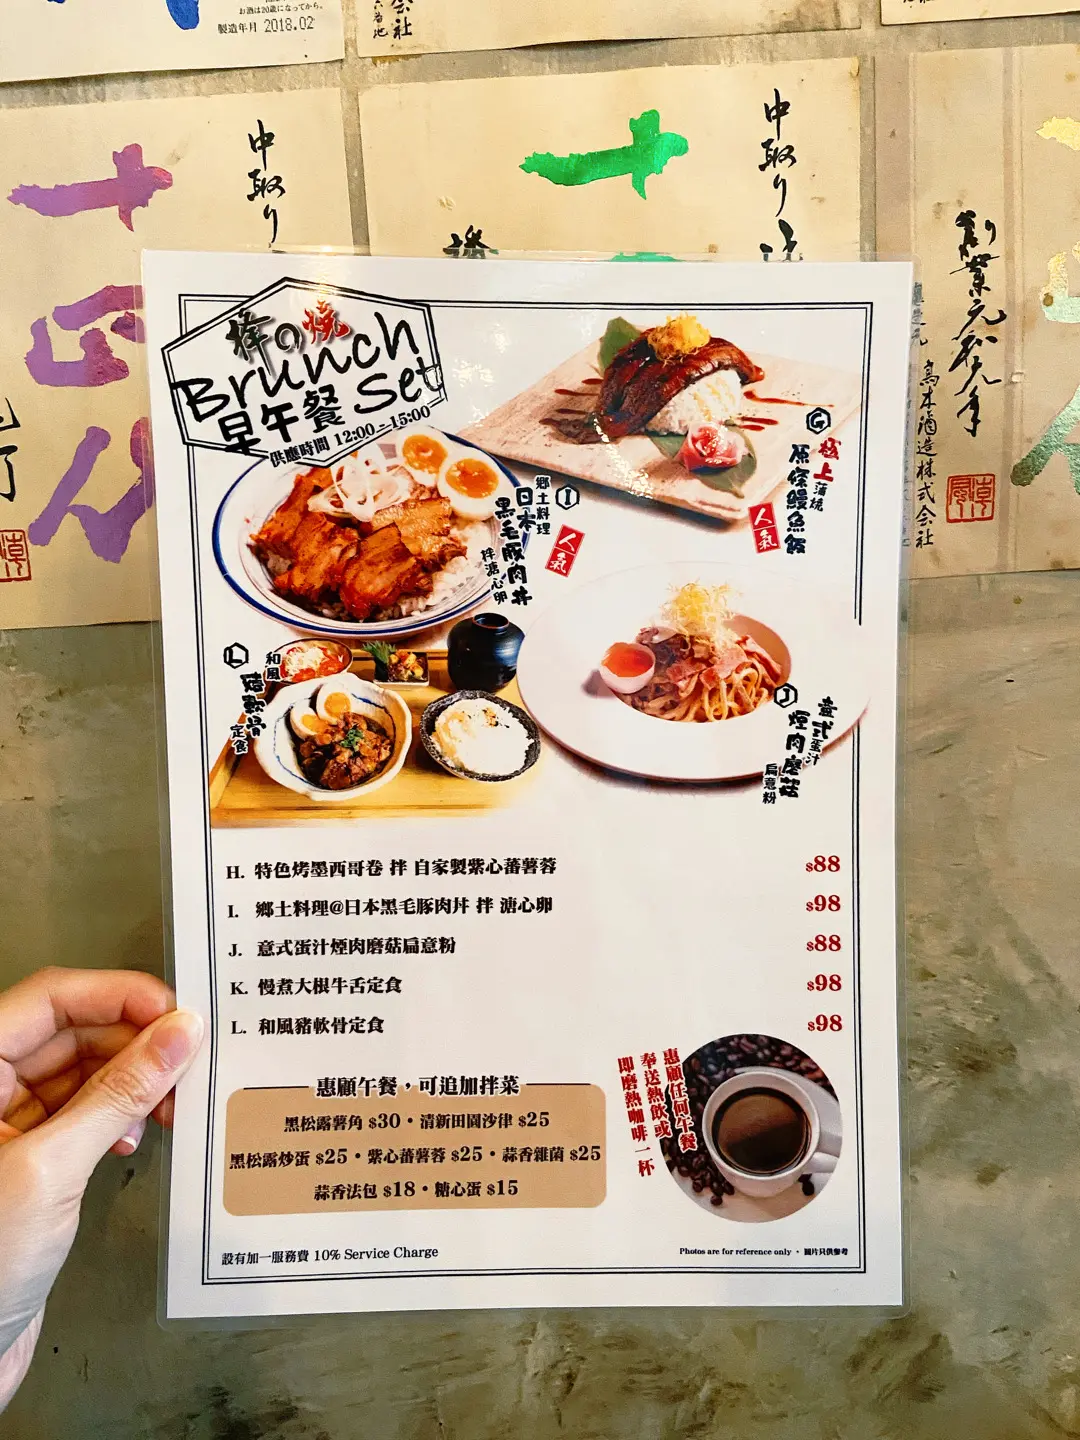 お酒は20歳になってから。
製造年月 2018.02
会社
中取り
中取り
創業元和九年
鳥本酒造株式会社
の燒
Brunch
Set
早午餐
供應時間 12:00 – 15:00
G
極上
蒲燒
原條鰻魚飯
人氣
I
鄉土料理
日本
黑毛豚肉丼
拌溏心卵
人氣
L
和風
豬軟骨
定食
J
意式
蛋汁
煙肉磨菇
扁意粉
H. 特色烤墨西哥卷 拌 自家製紫心蕃薯蓉 $88
I. 鄉土料理@日本黑毛豚肉丼 拌 溏心卵 $98
J. 意式蛋汁煙肉磨菇扁意粉 $88
K. 慢煮大根牛舌定食 $98
L. 和風豬軟骨定食 $98
惠顧午餐，可追加拌菜
黑松露薯角 $30・清新田園沙律 $25
黑松露炒蛋 $25・紫心蕃薯蓉 $25・蒜香雜菌 $25
蒜香法包 $18・糖心蛋 $15
惠顧任何午餐
奉送熱飲或
即磨熱咖啡一杯
設有加一服務費 10% Service Charge
Photos are for reference only・圖片只供參考